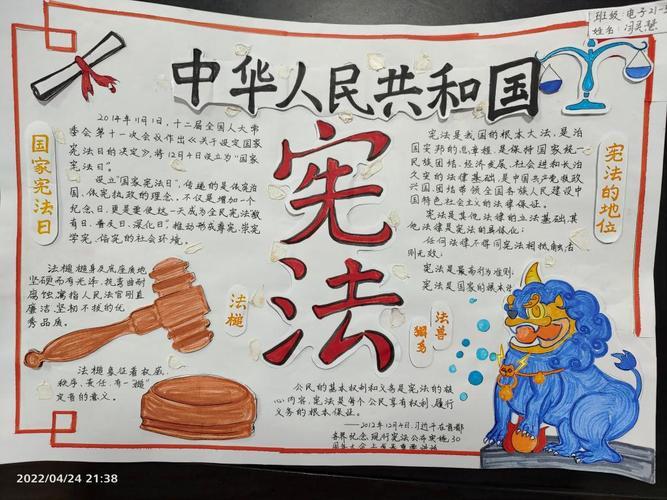 班级:电子21-3
姓名:闫灵慧
中华人民共和国
宪法
国家宪法日
2014年11月1日,十二届全国人大常
委会第十一次会议作出《关于设定国家
宪法日的决定》,将12月4日设立为"国家
宪法日"。
设立"国家宪法日",传递的是依宪治
国、依宪执政的理念,不仅是增加一个
纪念日,更是要使这一天成为全民宪法教
育日、普及日、深化日,推动形成尊宪、崇宪
学宪、信宪的社会环境。
宪法的地位
宪法是我国的根本大法,是治
国安邦的总章程,是保持国家统一
民族团结、经济发展、社会进和长治
久安的法律基础,是中国共产党执政
兴国、团结带领全国各族人民建设中
国特色社会主义的法律保证。
宪法是其他法律的立法基础,其
他法律是宪法的具体化;
任何法律不得同宪法相抵触,
则无效;
宪法是最高行为准则
宪法是国家的根本
法槌
法槌槌身及底座质地
坚硬而有光泽,抗弯曲耐
腐蚀,寓指人民法官刚直
廉洁、坚韧不拔的优
秀品质。
法槌象征着权威、
秩序、责任,有一"槌"
定音的意义。
法兽
獬豸
公民的基本权利和义务是宪法的核
心内容,宪法是每个公民享有权利、履行
义务的根本保证。
——2012年12月4日,习近平在首都
各界纪念现行宪法公布实施30
2022/04/24 21:38